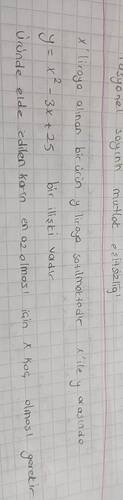 rasyonel sayının mutlak eşitsizliği
x liraya alınan bir ürün y liraya satılmaktadır x'ile y arasında
y = x² - 3x + 25 bir ilişki vadır
Üründe elde edilen karın en az olması için x kaç olması gerekir